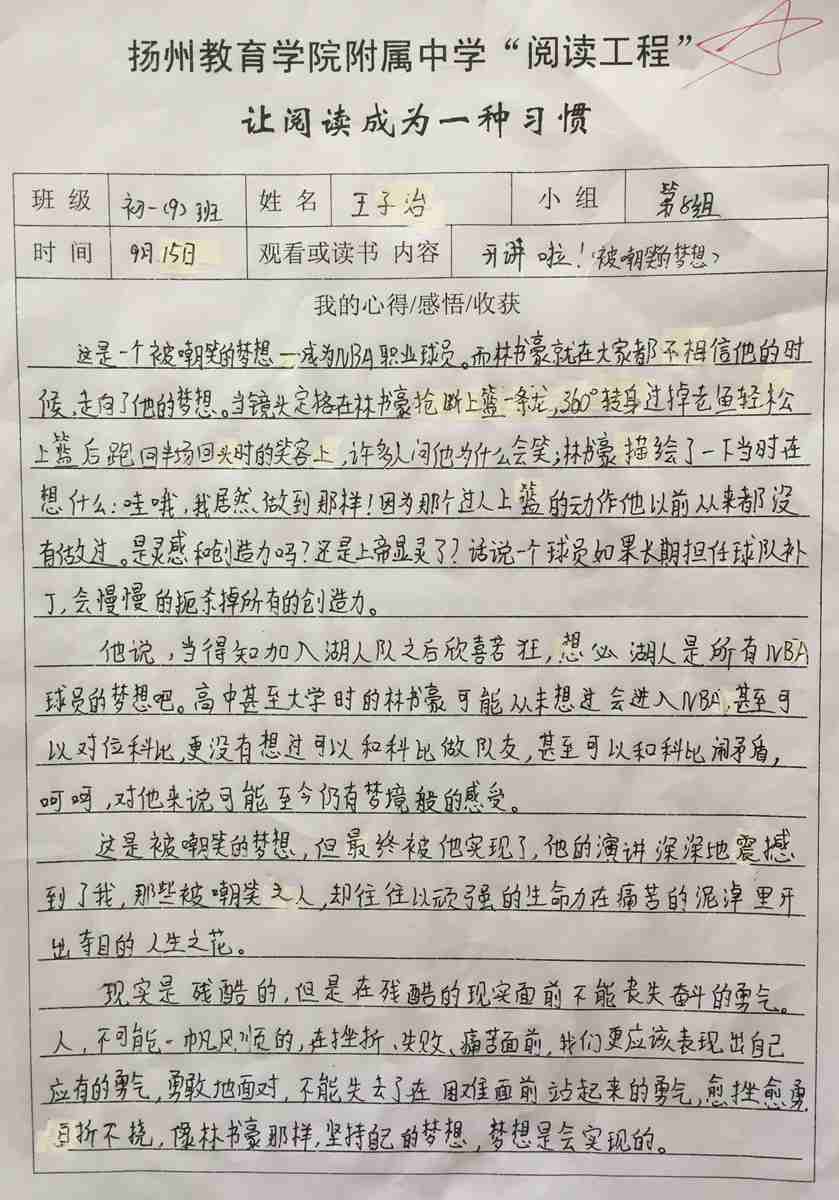 扬州教育学院附属中学“阅读工程”
让阅读成为一种习惯
班 级 初一(9)班 姓 名 王子治 小 组 第8组
时 间 9月15日 观看或读书 内容 开讲啦!〈被嘲笑的梦想〉
我的心得/感悟/收获
这是一个被嘲笑的梦想—成为NBA职业球员。而林书豪就在大家都不相信他的时
候,走向了他的梦想。当镜头定格在林书豪抢断上篮一条龙,360°转身过掉老鱼轻松
上篮后跑回半场回头时的笑容上,许多人问他为什么会笑;林书豪描绘了一下当时在
想什么:哇哦,我居然做到那样!因为那个过人上篮的动作他以前从来都没
有做过。是灵感和创造力吗?还是上帝显灵了?话说一个球员如果长期担任球队补
丁,会慢慢的扼杀掉所有的创造力。
他说,当得知加入湖人队之后欣喜若狂,想必湖人是所有NBA
球员的梦想吧。高中甚至大学时的林书豪可能从未想过会进入NBA,甚至可
以对位科比,更没有想过可以和科比做队友,甚至可以和科比闹矛盾,
呵呵,对他来说可能至今仍有梦境般的感受。
这是被嘲笑的梦想,但最终被他实现了,他的演讲深深地震撼
到了我,那些被嘲笑之人,却往往以顽强的生命力在痛苦的泥淖里开
出夺目的人生之花。
现实是残酷的,但是在残酷的现实面前不能丧失奋斗的勇气。
人,不可能一帆风顺的,在挫折、失败、痛苦面前,我们更应该表现出自己
应有的勇气,勇敢地面对,不能失去了在困难面前站起来的勇气,愈挫愈勇
百折不挠,像林书豪那样,坚持自己的梦想,梦想是会实现的。